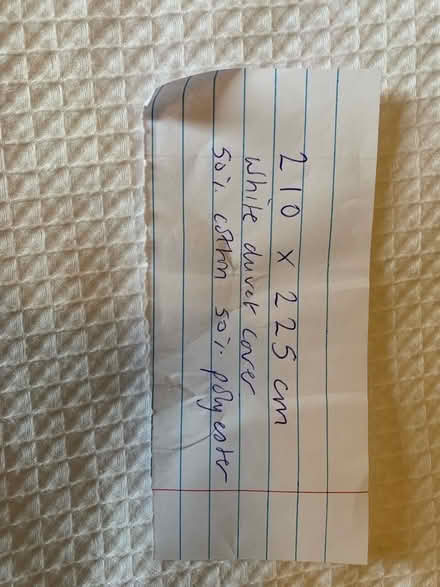 210 x 225 cm
White duvet cover
50% cotton 50% polyester